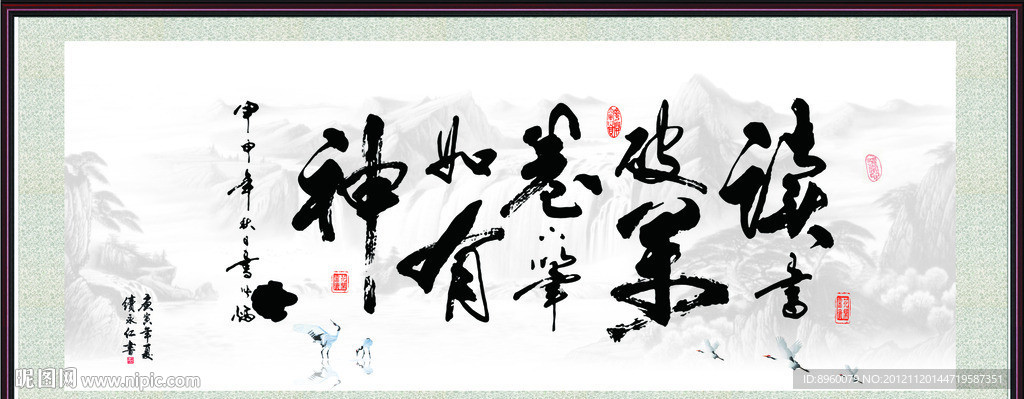 读書
破萬
卷下筆
如有
神
甲申年秋日書
庚寅年夏
續永仁書
昵图网 www.nipic.com
ID:8960079 NO:20121120144719587351